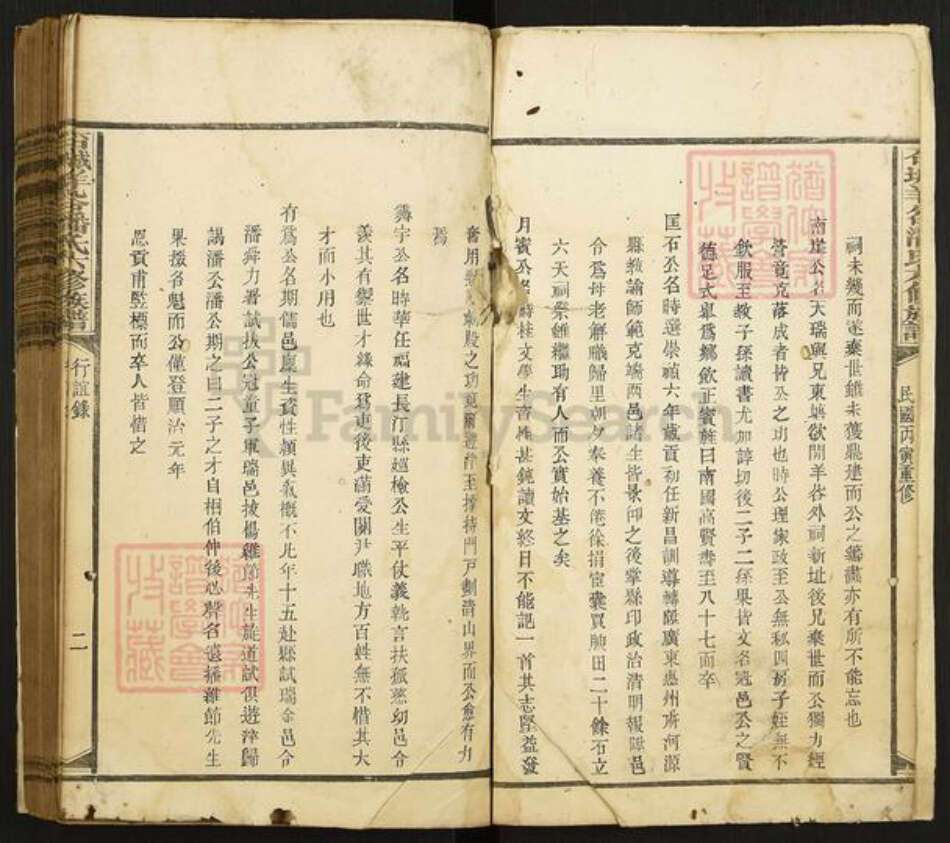 祠未幾而遂棄世雖未獲鼎建而公之籌畫亦有所不能忘也
南崖公名天瑞與兄東嶽欲開羊谷外祠新址後兄棄世而公獨力經
營竟克落成者皆公之功也時公理家政至公無私四房子姪無不
欽服至教子孫讀書尤加諄切後二子二孫果皆文名冠邑公之賢
德足式舉爲鄉飲正賓旌曰南國高賢壽至八十七而卒
匡石公名時選崇禎六年歲貢初任新昌訓導轉陞廣東惠州府河源
縣教諭師範克端兩邑諸生皆景仰之後掌縣印政治清明報陞邑
令爲母老解職歸里朝夕奉養不倦徐捐宦囊買腴田二十餘石立
六天祠祭雖繼助有人而公實始基之矣
月賓公名時桂文學生書性甚鈍讀文終日不能記一首其志堅益發
奮用 之功 至撐持門戸剷清山界而公愈有力
焉
宇公名時華任福建長汀縣巡檢公生平仗義執言扶孤慈幼邑令
羨其有禦世才錄命爲吏後吏滿愛關尹職地方百姓無不惜其大
才而小用也
有爲公名期儒邑廩生資性穎異氣概不凡年十五赴縣試瑞金邑令
潘舜力署試拔公冠童子軍瑞邑接楊維節先生旋道試俱遊泮歸
謁潘公潘公期之曰二子之才自相伯仲後必聲名遠播維節先生
果掇名魁而公僅登順治元年
恩貢甫監標而卒人皆惜之
潘氏六修族譜
行誼錄
二
民國丙寅重修
譜學會
收藏
FamilySearch